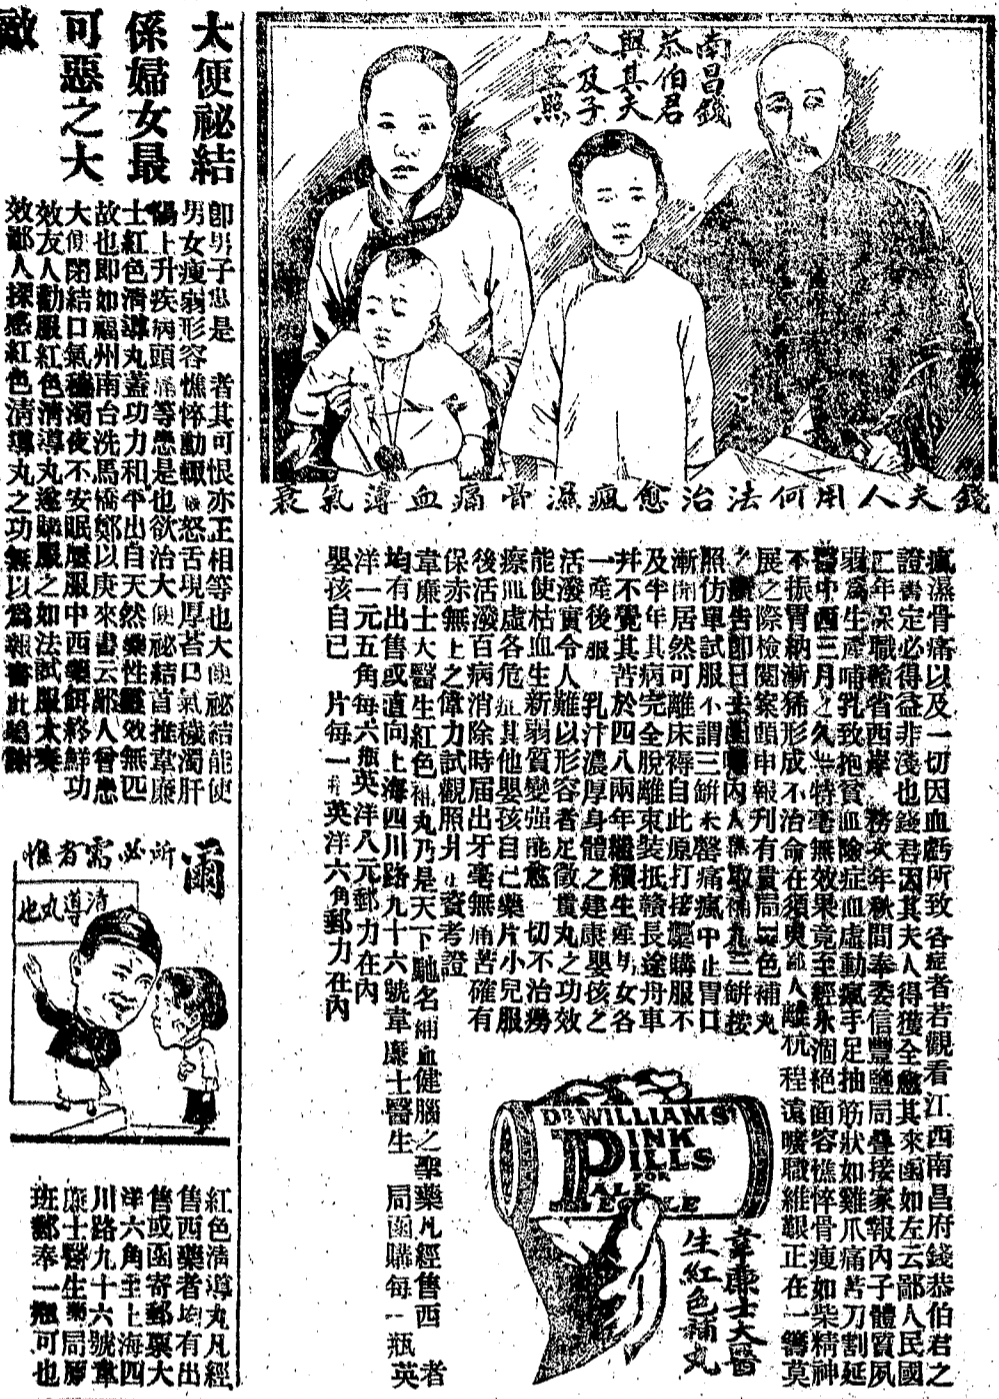 南昌錢
恭伯君
與其夫
人及子
女之照
錢夫人用何法治愈瘋濕骨痛血薄氣衰
瘋濕骨痛以及一切因血虧所致各症者若觀看江西南昌府錢恭伯君之
證書定必得益非淺也錢君因其夫人得獲全愈其來函如左云鄙人民國
二年保職贛省西岸 務次年秋間奉委信豐鹽局疊接家報內子體質夙
弱爲生產哺乳致抱貧血險症血虛動瘋手足抽筋狀如雞爪痛苦刀割延
醫中西三月之久 特毫無效果竟至經水涸絕面容憔悴骨瘦如柴精神
不振胃納漸稀形成不治命在須臾鄙人離杭程遠曠職維艱正在一籌莫
展之際檢閱案頭申報刊有貴局紅色補丸
告即日去 內人 取補丸三餅按
照仿單試服不謂三餅未罄痛瘋中止胃口
漸開居然可離床褥自此原打接續購服不
及半年其病完全脫離束裝抵贛長途舟車
幷不覺其苦於四八兩年繼續生產男女各
一產後服 乳汁濃厚身體之建康嬰孩之
活潑實令人難以形容者足徵貴丸之功效
能使枯血生新弱質變强能愈一切不治癆
瘵血虛各危症其他嬰孩自己藥片小兒服
後活潑百病消除時屆出牙毫無痛苦確有
保赤無上之偉力試觀照片 資考證
韋廉士大醫生紅色補丸乃是天下馳名補血健腦之聖藥凡經售西 者
均有出售或直向上海四川路九十六號韋廉士醫生 局函購每一瓶英
洋一元五角每六瓶英洋八元郵力在內
嬰孩自已 片每一 英洋六角郵力在內
DR WILLIAMS'
PINK
PILLS
FOR
PALE
PEOPLE
韋廉士大醫
生紅色補丸
大便祕結
係婦女最
可惡之大
敵
卽男子患是 者其可恨亦正相等也大便祕結能使
男女瘦弱形容憔悴動輒 怒舌現厚苔口氣穢濁肝
陽上升疾病頭痛等患是也欲治大便祕結首推韋廉
士紅色淸導丸蓋功力和平出自天然藥性靈效無匹
故也即如福州南台洗馬橋鄭以庚來書云鄙人曾患
大便閉結口氣穢濁夜不安眠屢服中西藥餌終鮮功
效友人勸服紅色清導丸遂購服之如法試服大奏
效鄙人探感紅色淸導丸之功無以爲報 書此
爾
所必需者惟
清導丸也
紅色清導丸凡經
售西藥者均有出
售或函寄郵票大
洋六角至上海四
川路九十六號韋
廉士醫生藥局原
班郵奉一瓶可也